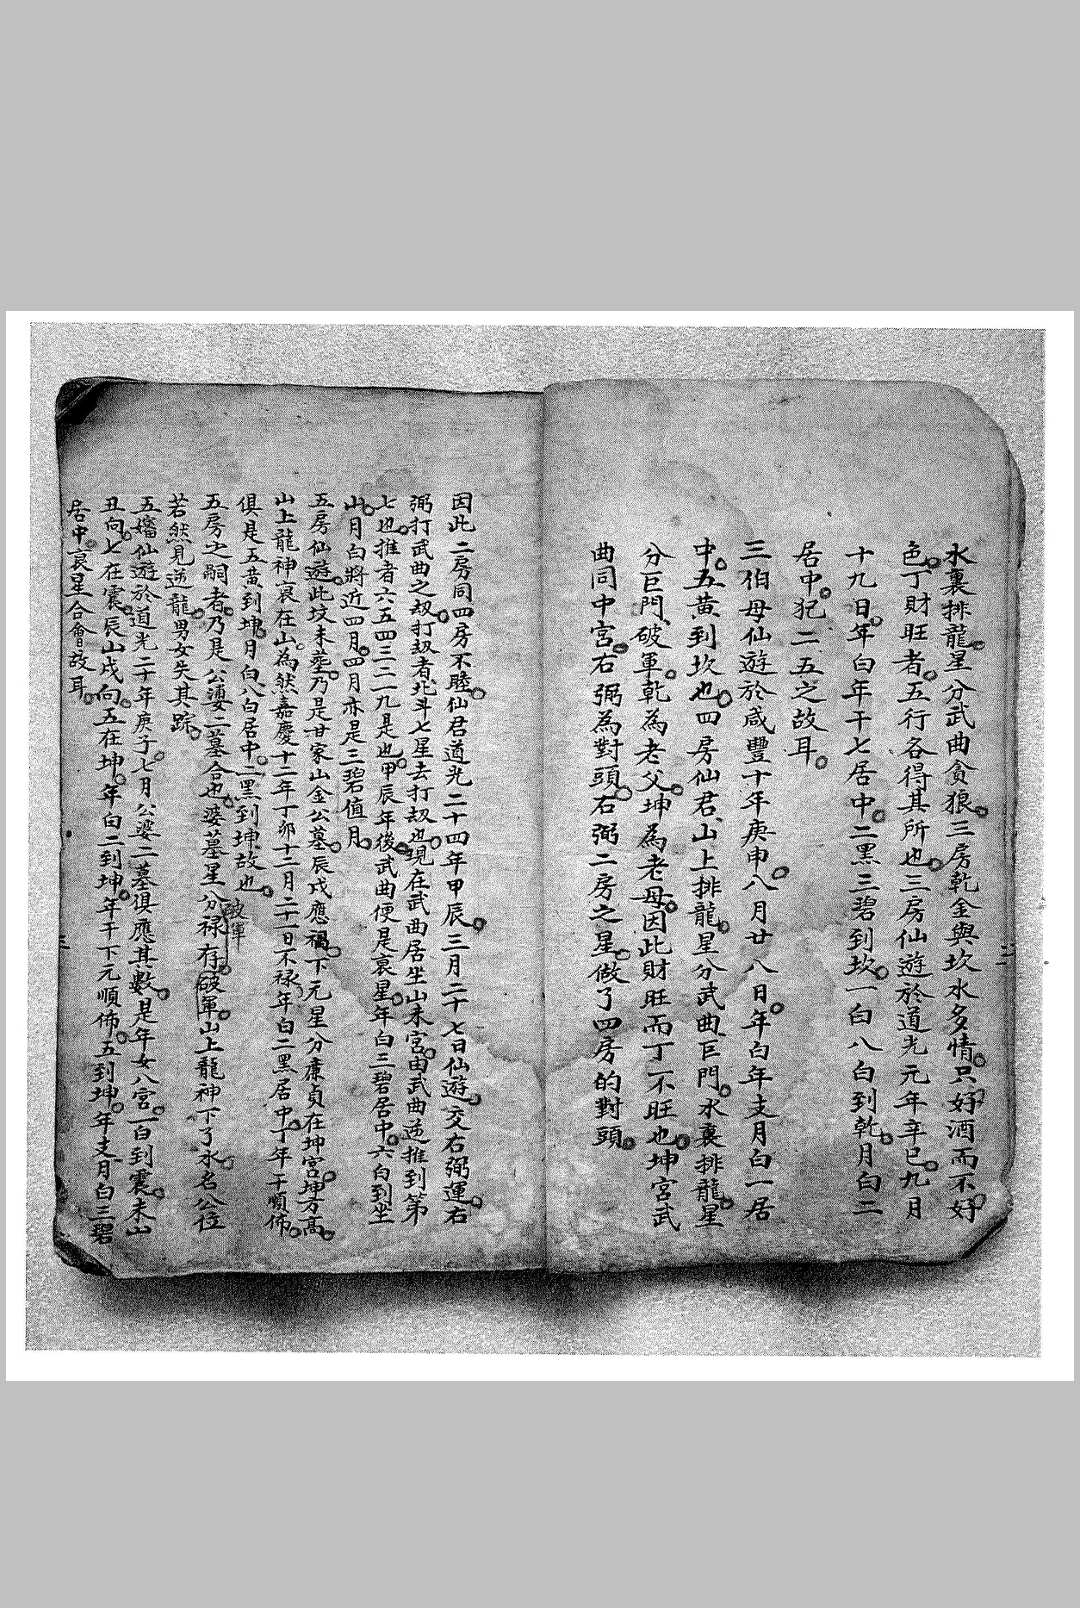 水裏排龍星分武曲貪狼。三房乾金與坎水多情。只好酒而不好
色。丁財旺者。五行各得其所也。三房仙遊於道光元年辛巳。九月
十九日。年白年干七居中。二黑三碧到坎。一白八白到乾。月白二
居中。犯二五之故耳。
三伯母仙遊於咸豐十年庚申。八月廿八日。年白年支月白一居
中。五黃到坎也。四房仙君山上排龍。星分武曲巨門。水裏排龍。星
分巨門破軍。乾為老父。坤為老母。因此財旺而丁不旺也。坤宮武
曲同中宮。右弼為對頭。右弼二房之星。做了四房的對頭。
因此二房同四房不睦。仙君道光二十四年甲辰。三月二十七日仙遊。交右弼運。右
弼打武曲之刼。打刼者。北斗七星去打刼也。現在武曲居坐山未宮。由武曲逆推到第
七也。推者六五四三二一九是也。甲辰年後。武曲便是衰星。年白三碧居中。六白到坐
山。月白將近四月。四月亦是三碧值月。
五房仙遊。此坟未塟。乃是甘家山金公墓。辰戌應禍。下元星分廉貞在坤宮。坤方高。
山上龍神衰在山。為然嘉慶十二年丁卯十二月二十一日不禄。年白二黑居中。丁年干順佈。
俱是五黃到坤。月白八白居中。二黑到坤故也。
五房之嗣者。乃是公婆二墓合也。婆墓星分禄存。破軍。山上龍神下了水。名公位
破軍
若然見逆龍。男女失其踪。
五嬸仙遊於道光二十年庚子。七月公婆二墓俱應其數。是年女八宮。一白到震。未山
丑向。七在震。辰山戌向。五在坤。年白二到坤。年干下元順佈。五到坤。年支月白三碧
居中。衰星合會故耳。
二
三